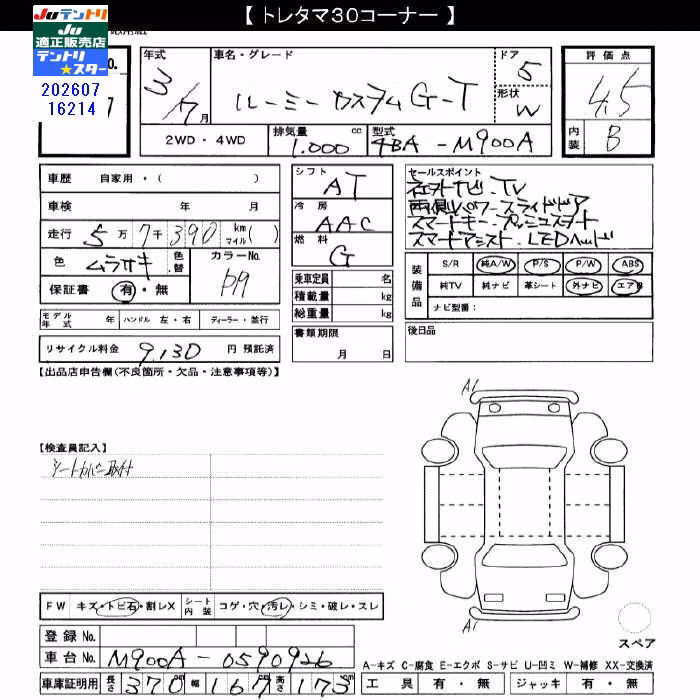 【 トレタマ30コーナー 】
Juテントリ
Ju
適正販売店
テントリ
★スター
202607
16214
No.
7
年式
3/7月
車名・グレード
ルーミー カスタム G-T
ドア
5
形状
W
評価点
4.5
内装
B
2WD・4WD
排気量
1.000 cc
型式
4BA - M900A
車歴 自家用・( )
車検 年 月
走行 5万7千390 km マイル( )
色 ムラサキ 色替
カラーNo. P19
保証書 有・無
モデル年式 年 ハンドル 左・右 ディーラー・並行
リサイクル料金 9,130 円 預託済
シフト
AT
冷房
AAC
燃料
G
乗車定員 名
積載量 kg
総重量 kg
書類期限
月 日
セールスポイント
社外ナビ・TV
両側パワースライドドア
スマートキー・プッシュスタート
スマートアシスト・LEDヘッド
装備品
S/R 純A/W P/S P/W ABS
純TV 純ナビ 革シート 外ナビ エアB
ナビ型番：
後日品
【出品店申告欄(不良箇所・欠品・注意事項等)】
【検査員記入】
シートカバー取付
A1
A1
スペア
FW キズ・トビ石・割レX シート内装 コゲ・穴・汚レ・シミ・破レ・スレ
登録 No.
車台 No. M900A - 0590926
車庫証明用 長さ 370cm 幅 167 高さ 173cm
A-キズ C-腐食 E-エクボ S-サビ U-凹ミ W-補修 XX-交換済
工具 有・無 ジャッキ 有・無